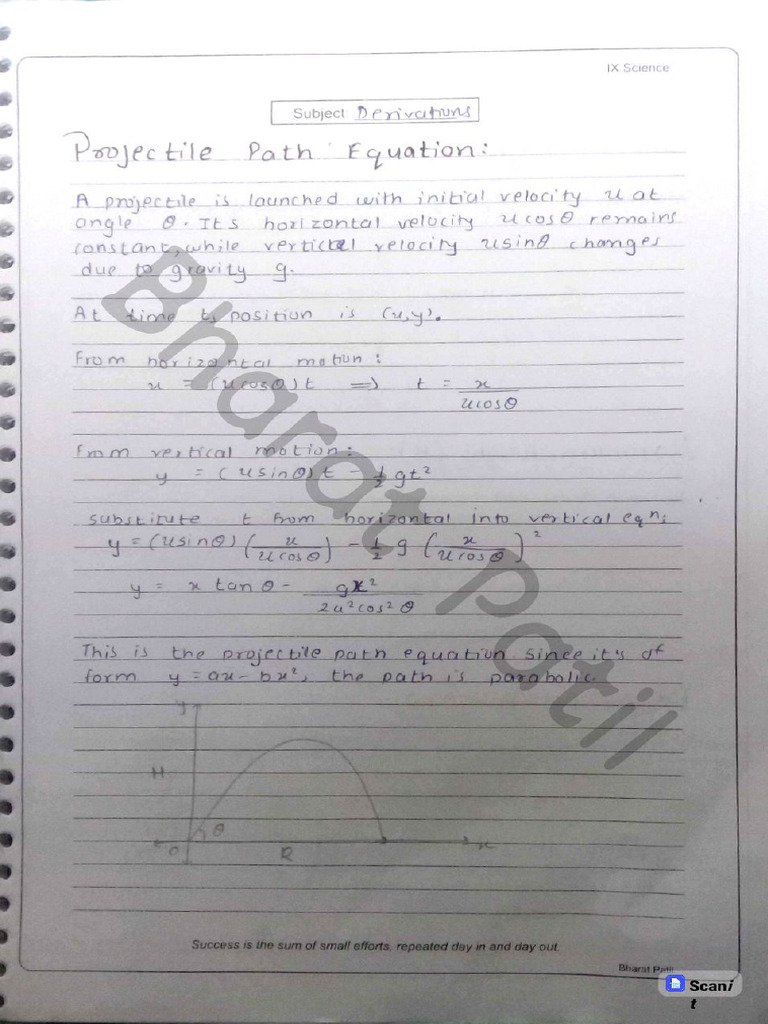 IX Science
Subject: Derivations
Projectile Path Equation:
A projectile is launched with initial velocity u at
angle θ. Its horizontal velocity u cosθ remains
constant, while vertical velocity usinθ changes
due to gravity g.
At time t, position is (x,y).
From horizontal motion:
x = (ucosθ)t ⇒ t = x / ucosθ
From vertical motion:
y = (usinθ)t - 1/2 gt²
Substitute t from horizontal into vertical eqn:
y = (usinθ) (x / ucosθ) - 1/2 g (x / ucosθ)²
y = x tanθ - gx² / 2u²cos²θ
This is the projectile path equation since it's of
form y = ax - bx², the path is parabolic.
y
H
θ
O R x
Success is the sum of small efforts, repeated day in and day out.
Bharat Patil
Scanit
Bharat Patil